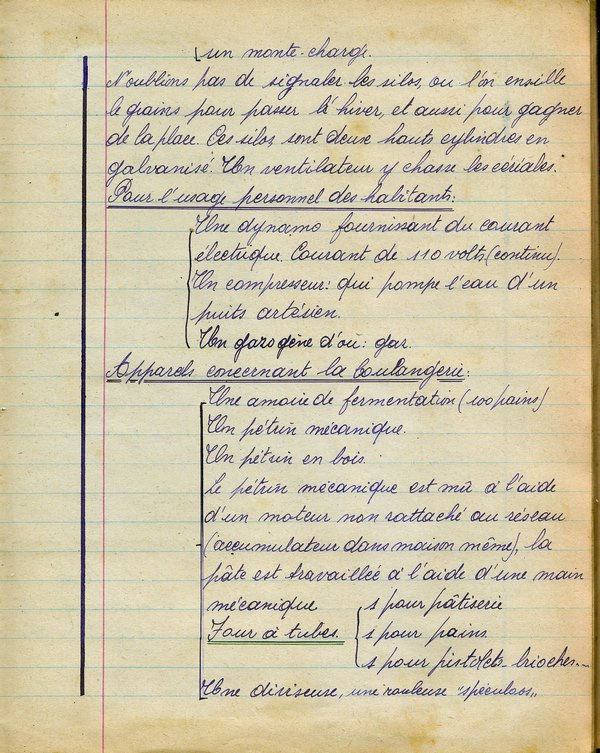 un monte-charge.
N'oublions pas de signaler les silos, ou l'on ensille
le grains pour passer l'hiver, et aussi pour gagner
de la place. Ces silos sont deux hauts cylindres en
galvanisé. Un ventilateur y chasse les céréales.
Pour l'usage personnel des habitants:
Une dynamo fournissant du courant
électrique. Courant de 110 volts (continu).
Un compresseur: qui pompe l'eau d'un
puits artésien.
Un gazogène d'où: gaz.
Appareils concernant la boulangerie:
Une armoire de fermentation (100 pains)
Un pétrin mécanique.
Un pétrin en bois.
Le pétrin mécanique est mû à l'aide
d'un moteur non rattaché au réseau
(accumulateur dans maison même), la
pâte est travaillée à l'aide d'une main
mécanique
Four à tubes.
1 pour pâtiserie
1 pour pains
1 pour pistolets-brioches...
Une diviseuse, une rouleuse "spéculoos„